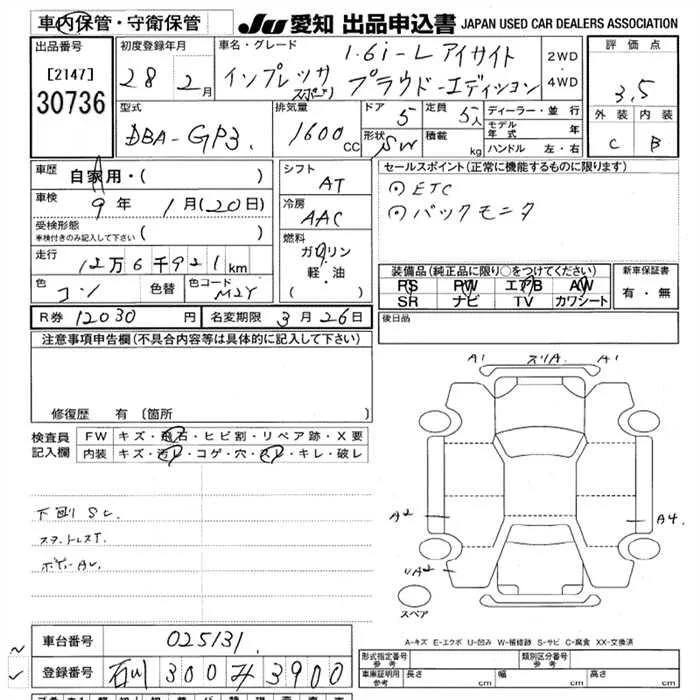 車内保管・守衛保管 JU 愛知 出品申込書 JAPAN USED CAR DEALERS ASSOCIATION
出品番号 [2147] 30736
初度登録年月 28 2月
車名・グレード インプレッサ スポーツ 1.6i-L アイサイト プラウド-エディション
2WD・4WD
評価点 3.5
外装 内装
C B
型式 DBA-GP3.
排気量 1600 CC
ドア 5
定員 5人
形状 SW
積載 kg
ディーラー・並行
モデル年式 年
ハンドル 左・右
車歴 自家用・( )
車検 9年 1月(20日)
受検形態 車検付きのみ記入して下さい ( )
走行 12万6千921km
色 コン 色替 色コード M2Y
シフト AT
冷房 AAC
燃料 ガソリン 軽・油 ( )
セールスポイント(正常に機能するものに限ります)
⊙ETC
⊙バックモニタ
装備品(純正品に限り○をつけてください)
PS PW エアB AW
SR ナビ TV カワシート
新車保証書 有・無
R券 12030円 名変期限 3月26日
後日品
注意事項申告欄(不具合内容等は具体的に記入して下さい)
修復歴 有 (箇所 )
検査員記入欄
FW キズ・飛石・ヒビ割・リペア跡・X要
内装 キズ・汚レ・コゲ・穴・スレ・キレ・破レ
下回りSC.
スタートレスT.
A1 スリA. A1
A2 A4
UA2
スペア
A-キズ E-エクボ U-凹み W-補修跡 S-サビ C-腐食 XX-交換済
車台番号 025131
登録番号 石川 300 み 3900
形式指定番号 参考 類別区分番号 参考
車庫証明用 参考 長さ cm 幅 cm 高さ cm